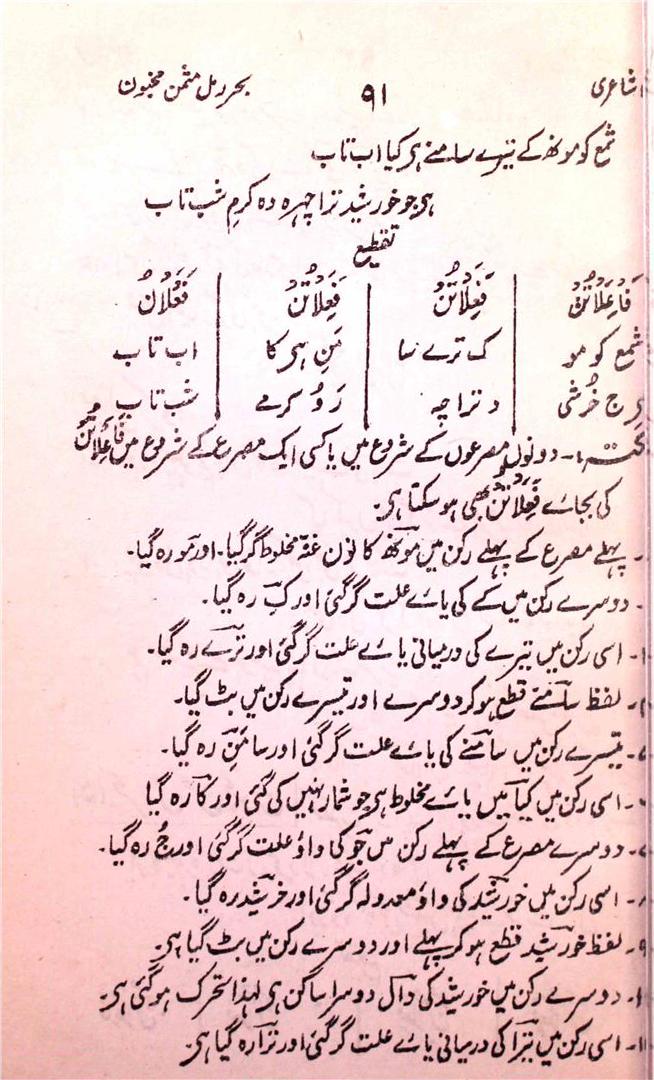 شاعری ۹۱ بحر رمل مثمن مخبون
شمع کو مونھ کے تیرے سامنے ہی کیا اب تاب
ہی جو خورشید ترا چہرہ دہ کرمِ شب تاب
تقطیع
فَاعِلَاتُنْ فَعِلَاتُنْ فَعِلَاتُنْ فَعْلَانْ
شمع کو مو کِ ترے سا مَنِ ہی کا اب تاب
ہِ جُ خُرشی دِ ترا چہ رَہُ کرمے شب تاب
نکتہ ۱۔ دونوں مصرعوں کے شروع میں یا کسی ایک مصرع کے شروع میں فَاعِلَاتُنْ
کی بجاے فَعِلَاتُنْ بھی ہو سکتا ہی۔
۔ پہلے مصرع کے پہلے رکن میں مونھ کا نون غنہ مخلوط گر گیا۔ اور مَو رہ گیا۔
۔ دوسرے رکن میں کے کی یاے علت گر گئی اور کِ رہ گیا۔
۔ اسی رکن میں تیرے کی درمیانی یاے علت گر گئی اور ترے رہ گیا۔
۔ لفظ سامنے قطع ہو کر دوسرے اور تیسرے رکن میں بٹ گیا۔
۔ تیسرے رکن میں سامنے کی یاے علت گر گئی اور سامَنِ رہ گیا۔
۔ اسی رکن میں کیا میں یاے مخلوط ہی جو شمار نہیں کی گئی اور کا رہ گیا
۔ دوسرے مصرع کے پہلے رکن میں جو کا واؤ علت گر گئی اور جُ رہ گیا۔
۸۔ اسی رکن میں خورشید کی واؤ معدولہ گر گئی اور خرشید رہ گیا۔
۹۔ لفظ خورشید قطع ہو کر پہلے اور دوسرے رکن میں بٹ گیا ہی۔
۱۰۔ دوسرے رکن میں خورشید کی دال دوسرا ساکن ہی لہذا متحرک ہو گئی ہی۔
۱۱۔ اسی رکن میں تیرا کی درمیانی یاے علت گر گئی اور ترا رہ گیا ہی۔